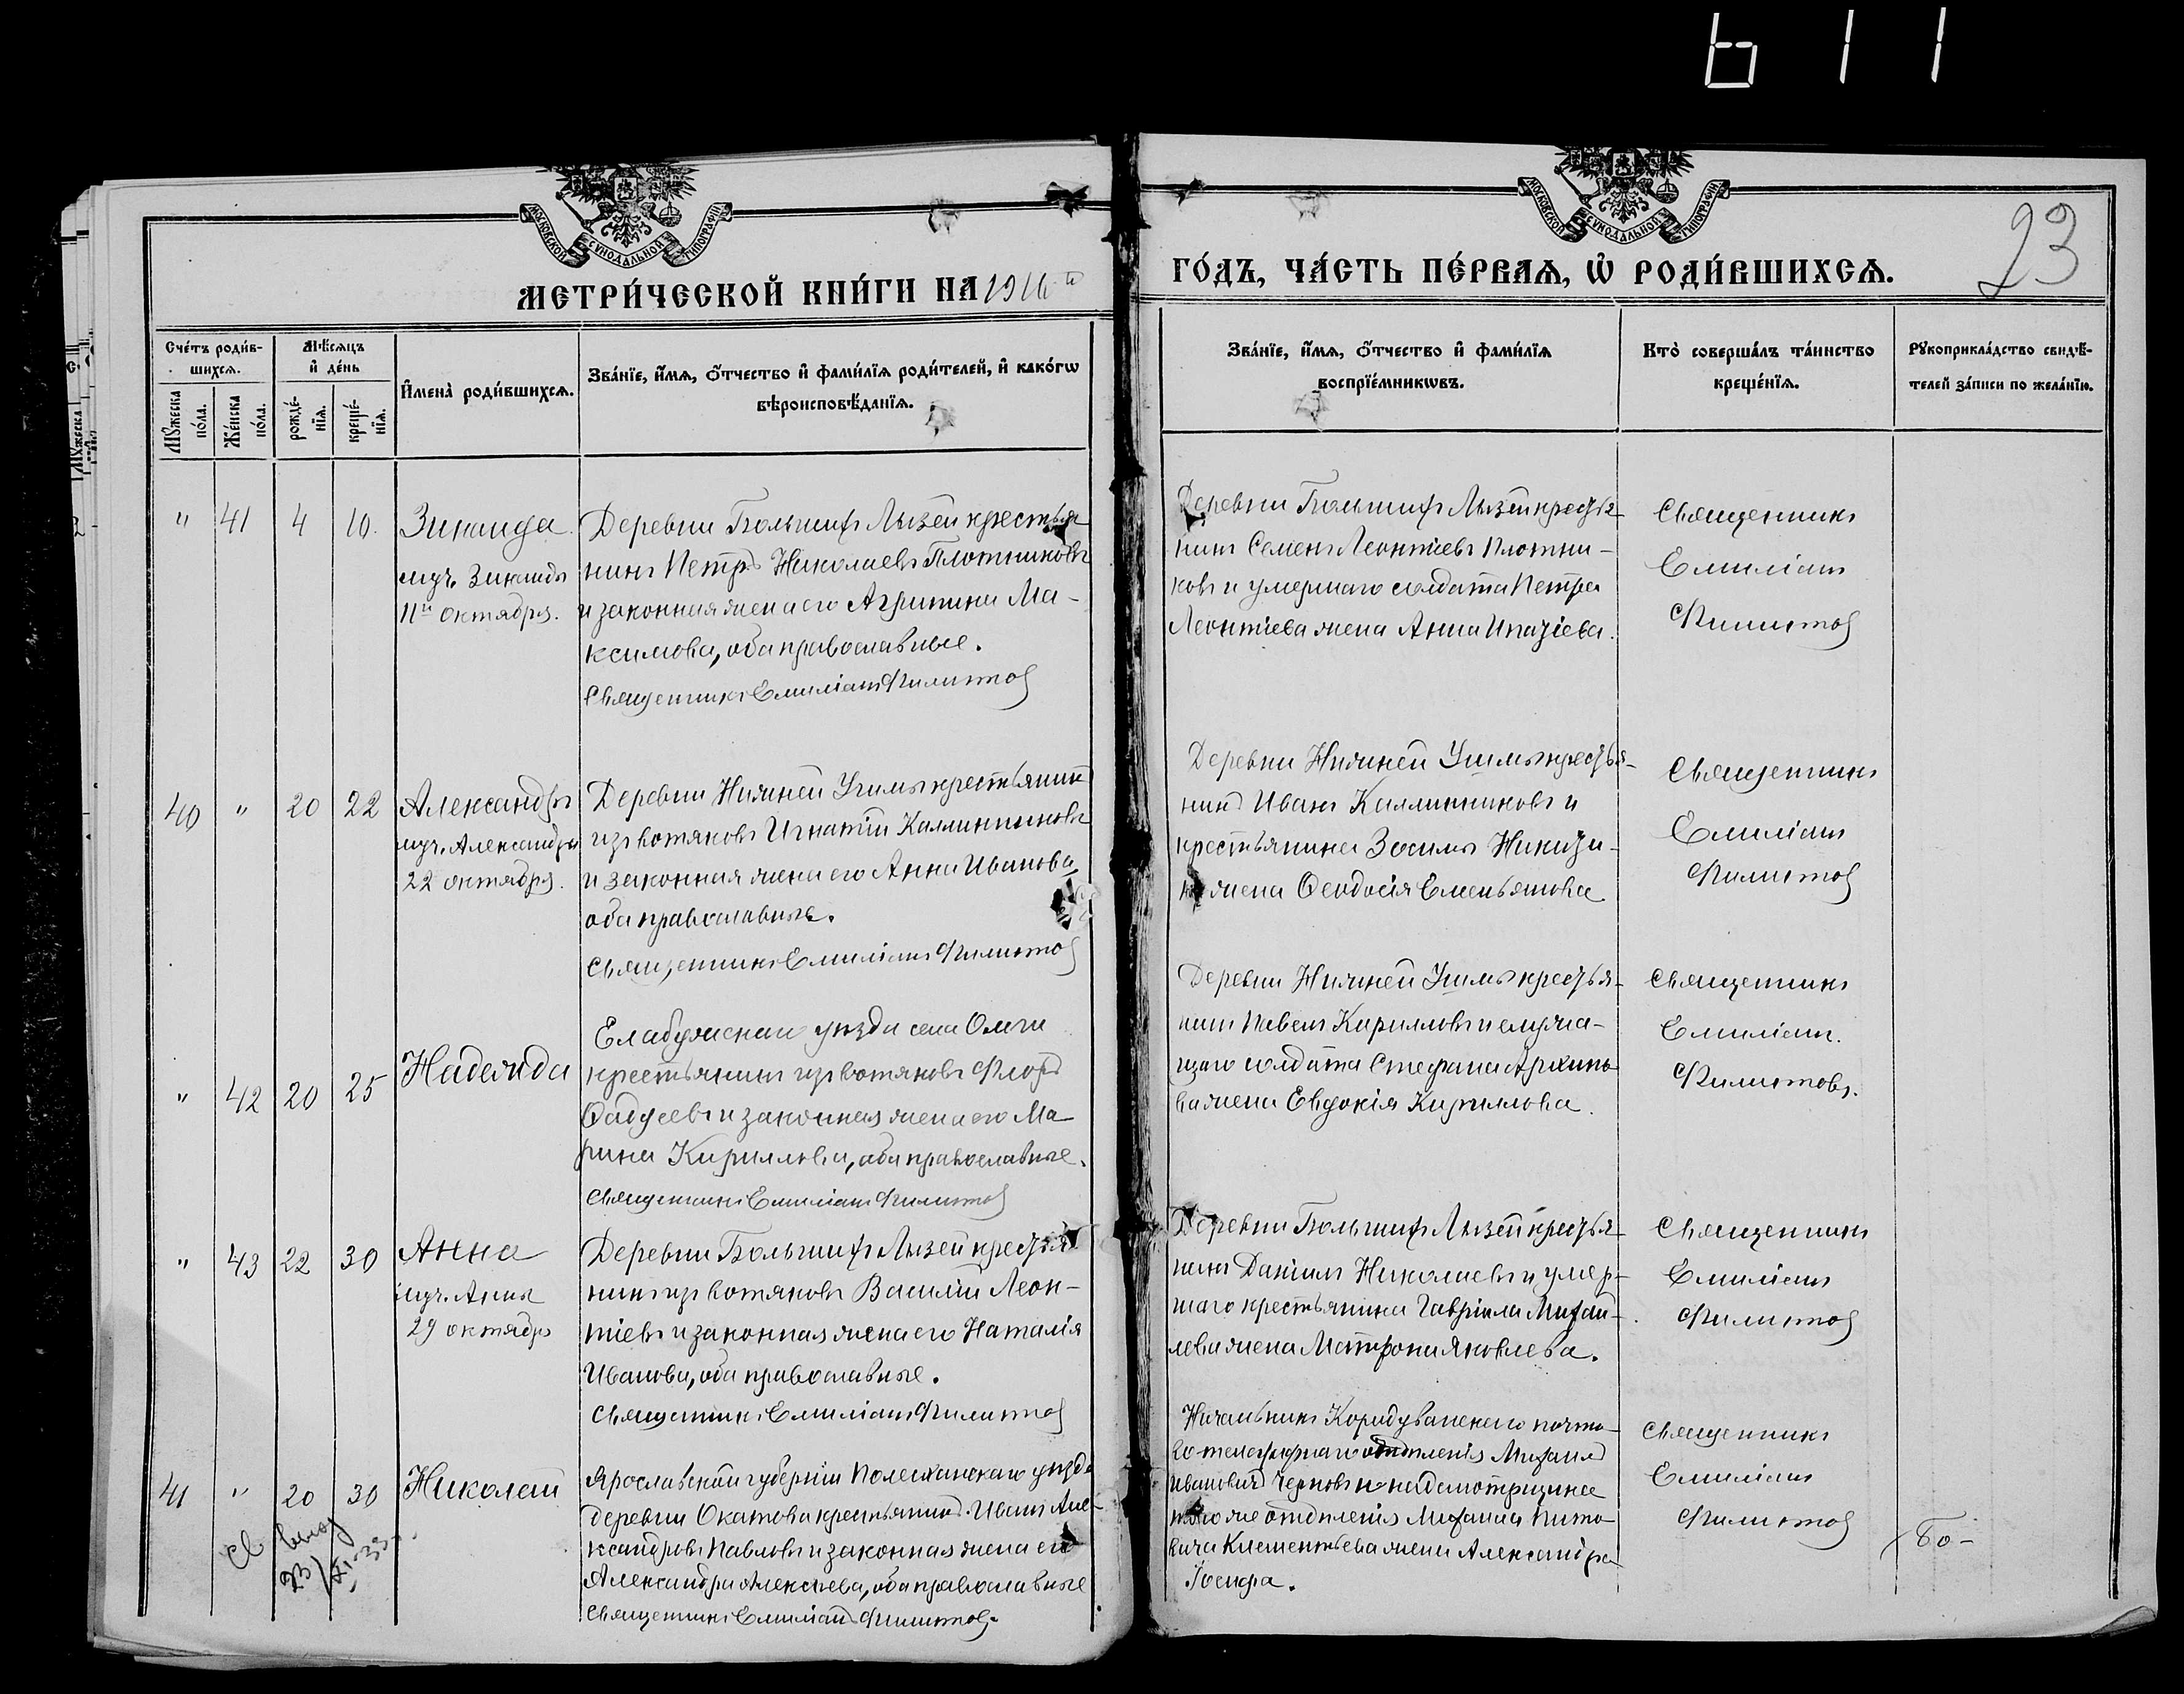 611
МОСКОВСКОЙ СУНОДАЛЬНОЙ ТИПОГРАФІИ
МОСКОВСКОЙ СУНОДАЛЬНОЙ ТИПОГРАФІИ
23
МЕТРИ́ЧЕСКОЙ КНИ́ГИ НА
ГО́ДЪ, ЧА́СТЬ ПЕ́РВАѦ, Ѡ҆ РОДИ́ВШИХСѦ.
Сче́тъ роди́в-
шихсѧ.
Мꙋ́жеска по́ла.
Же́нска по́ла.
Мѣ́сѧцъ
и҆ де́нь
рожде́-нїѧ.
креще́-нїѧ.
И҆мена̀ роди́вшихсѧ.
Зва́нїе, и҆́мѧ, ѻ҆́тчество и҆ фами́лїѧ роди́телей, и҆ како́гѡ
вѣроисповѣ́данїѧ.
Зва́нїе, и҆́мѧ, ѻ҆́тчество и҆ фами́лїѧ
воспрїе́мникѡвъ.
Кто̀ соверша́лъ та́инство
креще́нїѧ.
Рꙋкоприкла́дство свидѣ́-
телей за́писи по жела́нїю.
" 41 4 10.
Зинаида
муч. Зинаиды
11го октября.
Деревни Большихъ Лызей крестья
нинъ Петръ Николаевъ Плотниковъ
и законная жена его Агрипина Ма-
ксимова, оба православные.
Священникъ Емиліанъ Филимоновъ
Деревни Большихъ Лызей крестья-
нинъ Семенъ Леонтіевъ Плотни-
ковъ и умершаго солдата Петра
Леонтіева жена Анна
Священникъ
Емиліанъ
40 " 20 22
Александръ
муч. Александра
22 октября.
Деревни Нижней Учимы? крестьянинъ
изъ вотяковъ Игнатій Каллинниковъ
и законная жена его Анна Иванова,
оба православные.
Священникъ Емиліанъ
Деревни Нижней крестья-
нинъ Иванъ Каллинниковъ и
крестьянина Зосимы
жена Ѳеодосія Емельянова
Священникъ
Емиліанъ
" 42 20 25
Надежда
Елабужскаго уѣзда села Омги
крестьянинъ изъ вотяковъ Флоръ
Ѳаддеевъ и законная жена его Ма
рина Кириллова, оба православные.
Священникъ Емиліанъ
Деревни Нижней крестья-
нинъ Павелъ Кирилловъ и служа-
щаго солдата Стефана Архипо
ва жена Евдокія Кириллова.
Священникъ
Емиліанъ.
" 43 22 30
Анна
муч. Анны
29 октября
Деревни Большихъ Лызей крестья
нинъ изъ вотяковъ Василій Леон-
тіевъ и законная жена его Наталія
Иванова, оба православные.
Священникъ Емиліанъ
Деревни Большихъ Лызей крестья-
нинъ Даніилъ Николаевъ и умер-
шаго крестьянина Гавріила Михай-
лова жена Матрона Яковлева.
Священникъ
Емиліанъ
41 " 20 30
Николай
Ярославской губерніи Пошехонскаго уѣзда
деревни Окатова крестьянинъ Иванъ Але-
ксандровъ Павловъ и законная жена его
Александра Алексѣева, оба православные
Священникъ Емиліанъ
Начальникъ Кордуванскаго почто-
во-телеграфнаго отдѣленія Михаилъ
Ивановичъ Черновъ и надсмотрщика
того же отдѣленія Михаила
Клементьева жена Александра
Іосифа.
Священникъ
Емиліанъ